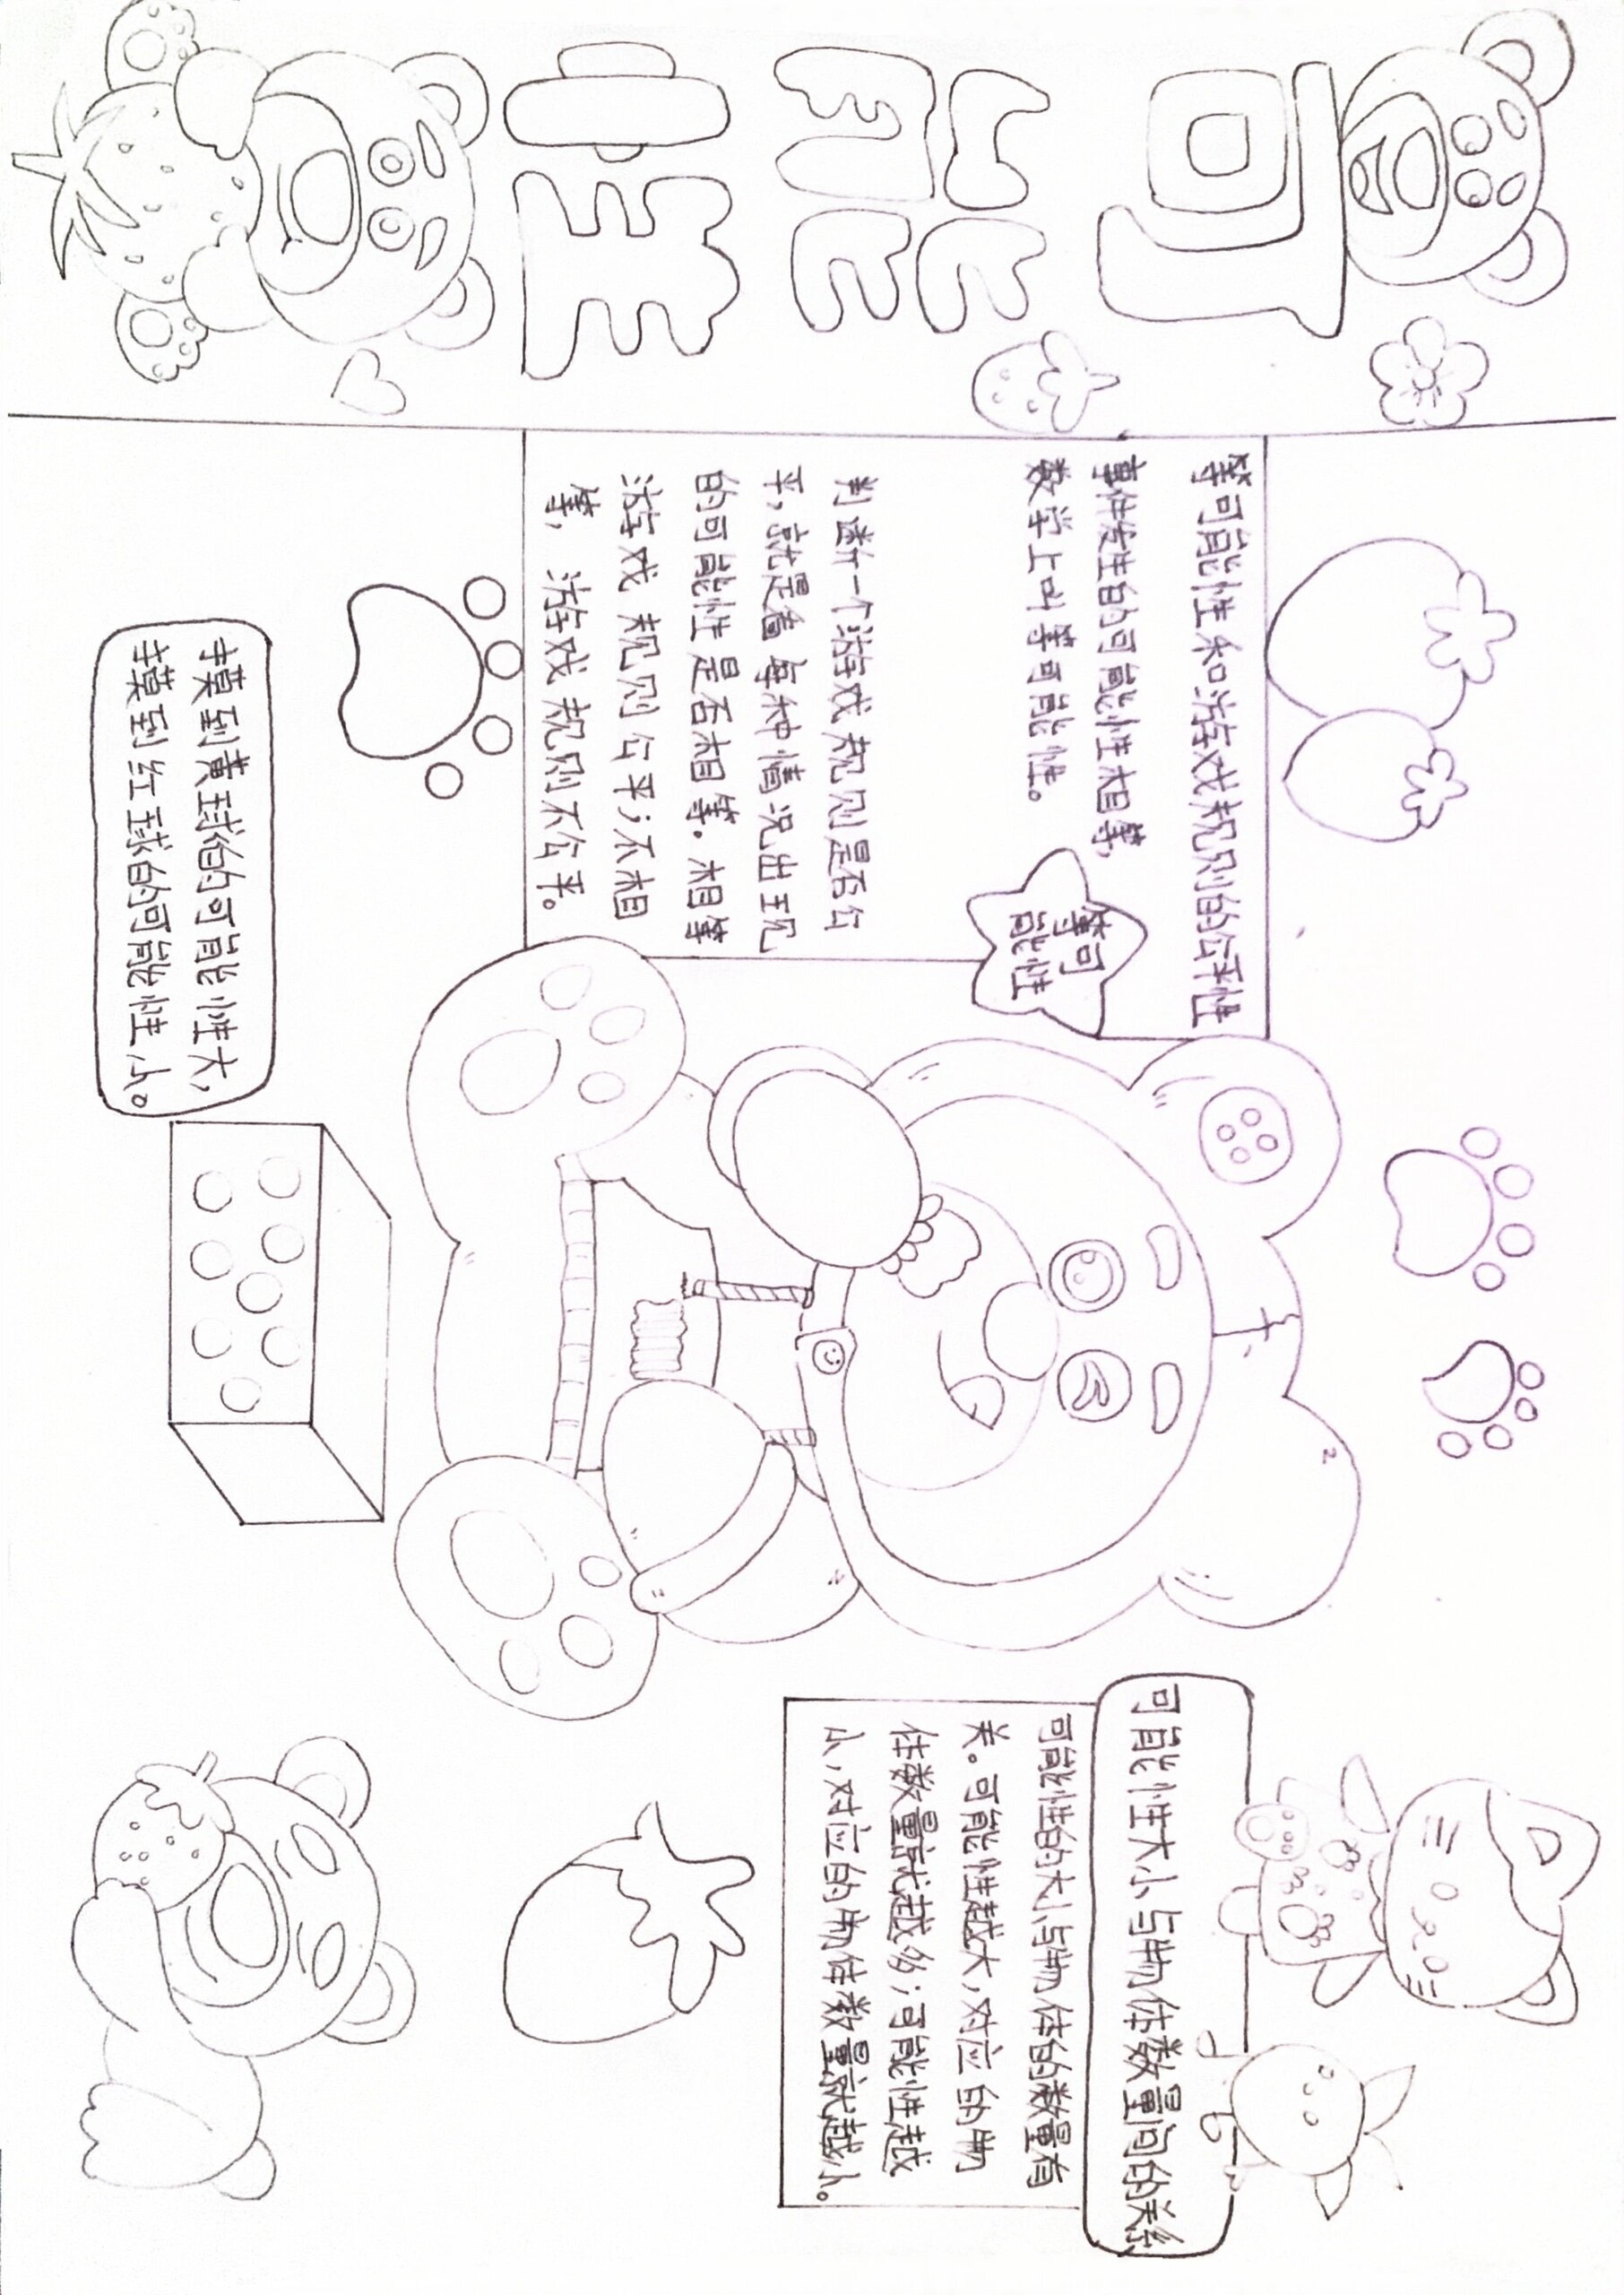 可能性
等可能性和游戏规则的公平性
事件发生的可能性相等,
数学上叫等可能性。
等可
能性
判断一个游戏规则是否公
平,就是看每种情况出现
的可能性是否相等。相等
游戏规则公平;不相
等,游戏规则不公平。
摸到黄球的可能性大,
摸到红球的可能性小。
可能性大小与物体数量间的关系
可能性的大小与物体的数量有
关。可能性越大,对应的物
体数量就越多;可能性越
小,对应的物体数量就越小。